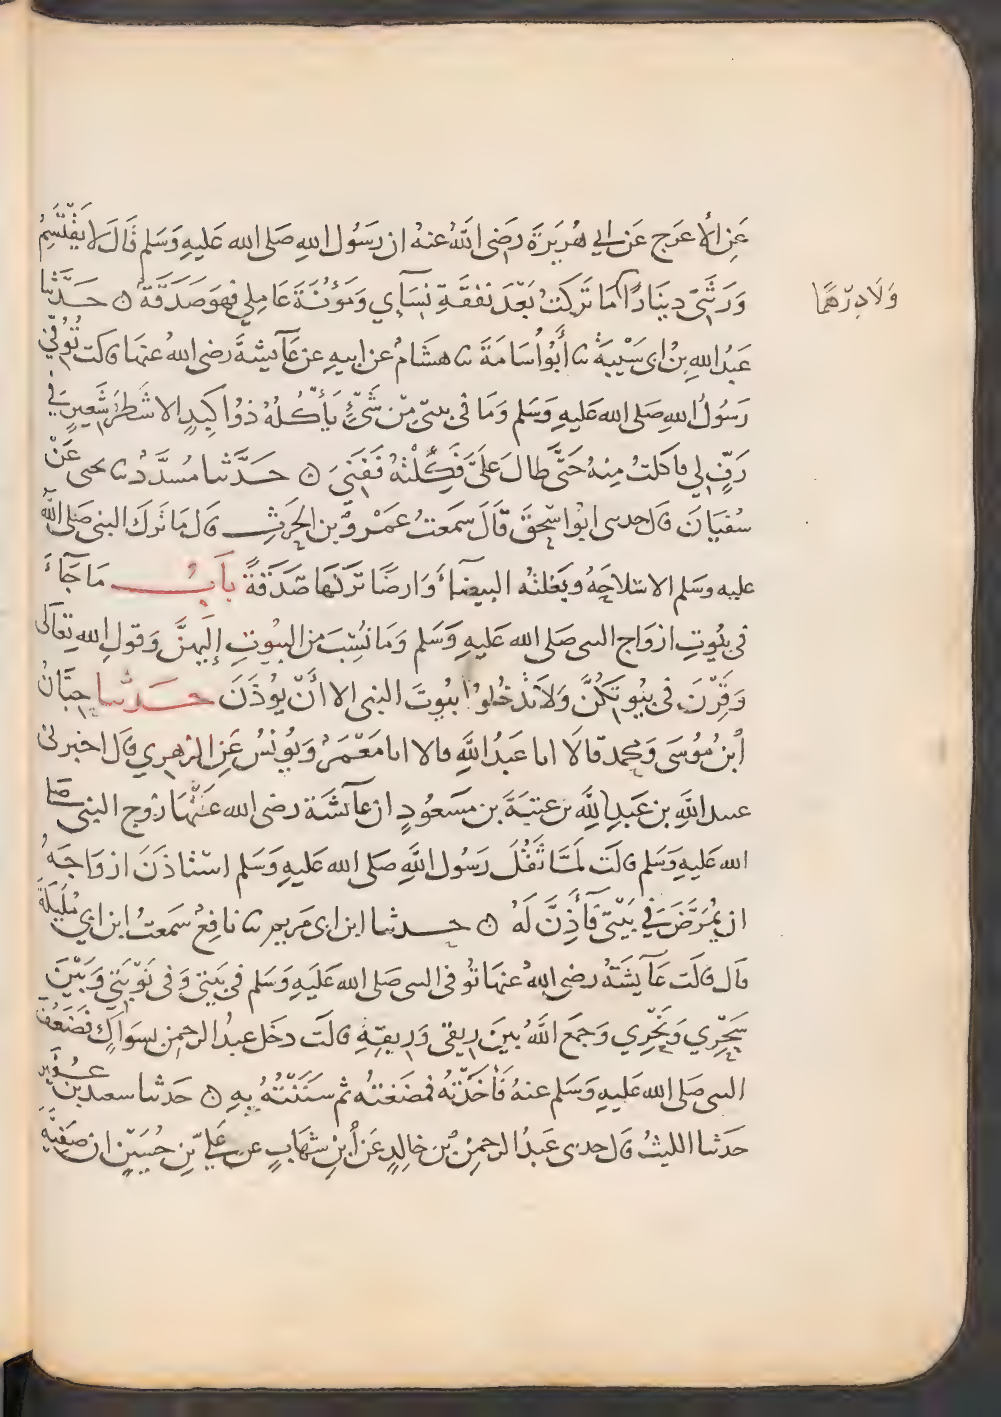 عَنِ الأَعرَج عَن ابي هُرَيرَةَ رضى اللهُ عنهُ ان رَسُول اللهِ صَلى الله عَليهِ وَسَلم قَالَ لا يَقْتَسِمُ
وَرَثَتىِ دِينَارًا مَا تَركتُ بَعْدَ نَفقَةِ نِسَآءِي وَمَؤُنَةَ عَامِلِي فهوَصَدَقَةٌ ه حَدَّثَنا
وَلَادِرْهَمًا
عَبدُ اللهِ بنُ ابى شَيْبَةَ ثنا أَبُو أُسَامَةَ ثنا هشَامٌ عن ابيهِ عن عَآئِشةَ رضى اللهُ عنهَا قالت تُوُفِّىَ
رَسُولُ اللهِ صَلى الله عَليهِ وَسَلم وَمَا فى بيتىِ مِنْ شَىْءٍ يَأْكُلُهُ ذُوا كَبِدٍ الا شَطْرُ شَعِيرٍ فِي
رَفٍّ لِي فاكلتُ مِنهُ حَتَّى طالَ عَلَىَّ فَكِلْتُهُ فَفَنِىَ ه حَدَّثَنا مُسدَّدٌ ثنا يحيى عَنْ
سُفيَانَ قال حدثنى ابُو اسْحٰقَ قَالَ سَمعتُ عَمْرَو بن الحٰرثِ قال مَا تَركَ النبى صَلى اللهُ
عليه وسَلم الا سِلاحَهُ وبَغلتهُ البيضَاءَ وَارضًا تَركَهَا صَدَقَةً بَابُ مَا جَآءَ
فى بيُوتِ ازوَاج النبى صَلى الله عَليهِ وَسَلم وَمَا نُسِبَ من البيُوتِ إليهِنَّ وَقولِ الله تعَالى
وَقَرْنَ فى بيُوتِكُنَّ وَلَا تَدْخُلُوا بيُوتَ النبى الا أَنْ يُؤذَنَ حَدثنا حِبَّانُ
أبنُ مُوسَى وَمحمد قَالَا انا عَبدُ اللهِ قالا انا مَعْمَرٌ وَيُونُسُ عَنِ الزهرِي قال اخبرنى
عبيد اللهِ بن عَبدِ اللهِ بن عتبَةَ بن مَسعُودٍ ان عآئشَةَ رضى الله عَنْهَا زوج النبى صَلى
الله عَليهِ وَسَلم قالَت لَمَّا ثَقُلَ رَسُولُ اللهِ صَلى الله عَليهِ وَسَلم استَاذَنَ ازوَاجَهُ
ان يُمَرَّضَ فِي بَيْتىِ فَأَذِنَّ لَهُ ه حدثنا ابن ابى مَريم ثنا نافِعٌ سَمعتُ ابن ابي مُلَيكَةَ
قال قالَت عَآئِشَةُ رضى اللهُ عنهَا تُوفى النبى صَلى الله عَليهِ وَسَلم فى بَيْتىِ وَفى نَوْبَتىِ وَبَيْنَ
سَحْرِي وَنَحْرِي وَجمَع اللهُ بينَ رِيقى وَرِيقِهِ قالَت دخَل عبدُ الرحمن بسوَاكٍ فضَعُفَ
النبى صَلى الله عَليهِ وَسَلم عنهُ فَأَخَذْتُهُ فَمضَغتُه ثم سَنَنْتُهُ بِهِ ه حَدثنا سعيد بن عُفَير
حَدثنا الليثُ قال حدثنى عَبدُ الرحمنِ بْنُ خالِدٍ عَنْ أبن شهَابٍ عن عَلِيِّ بنِ حُسَينٍ ان صَفِيَّةَ